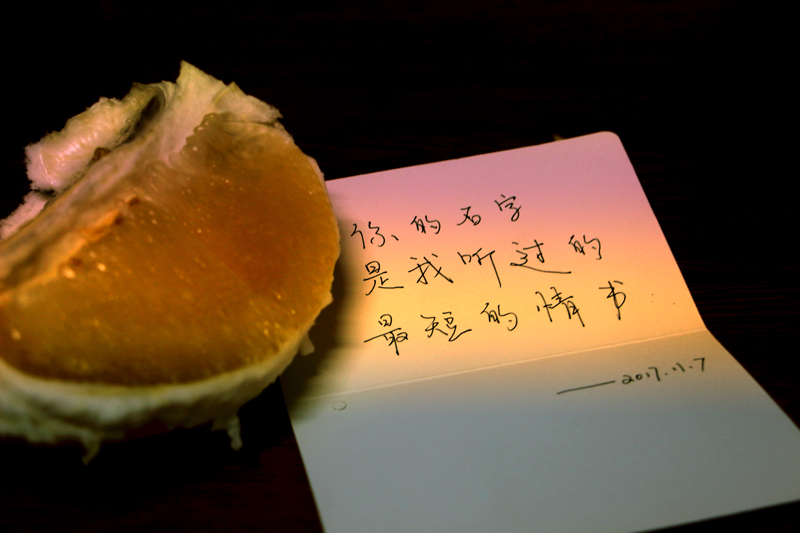 你的名字
是我听过的
最短的情书
——2017.11.7